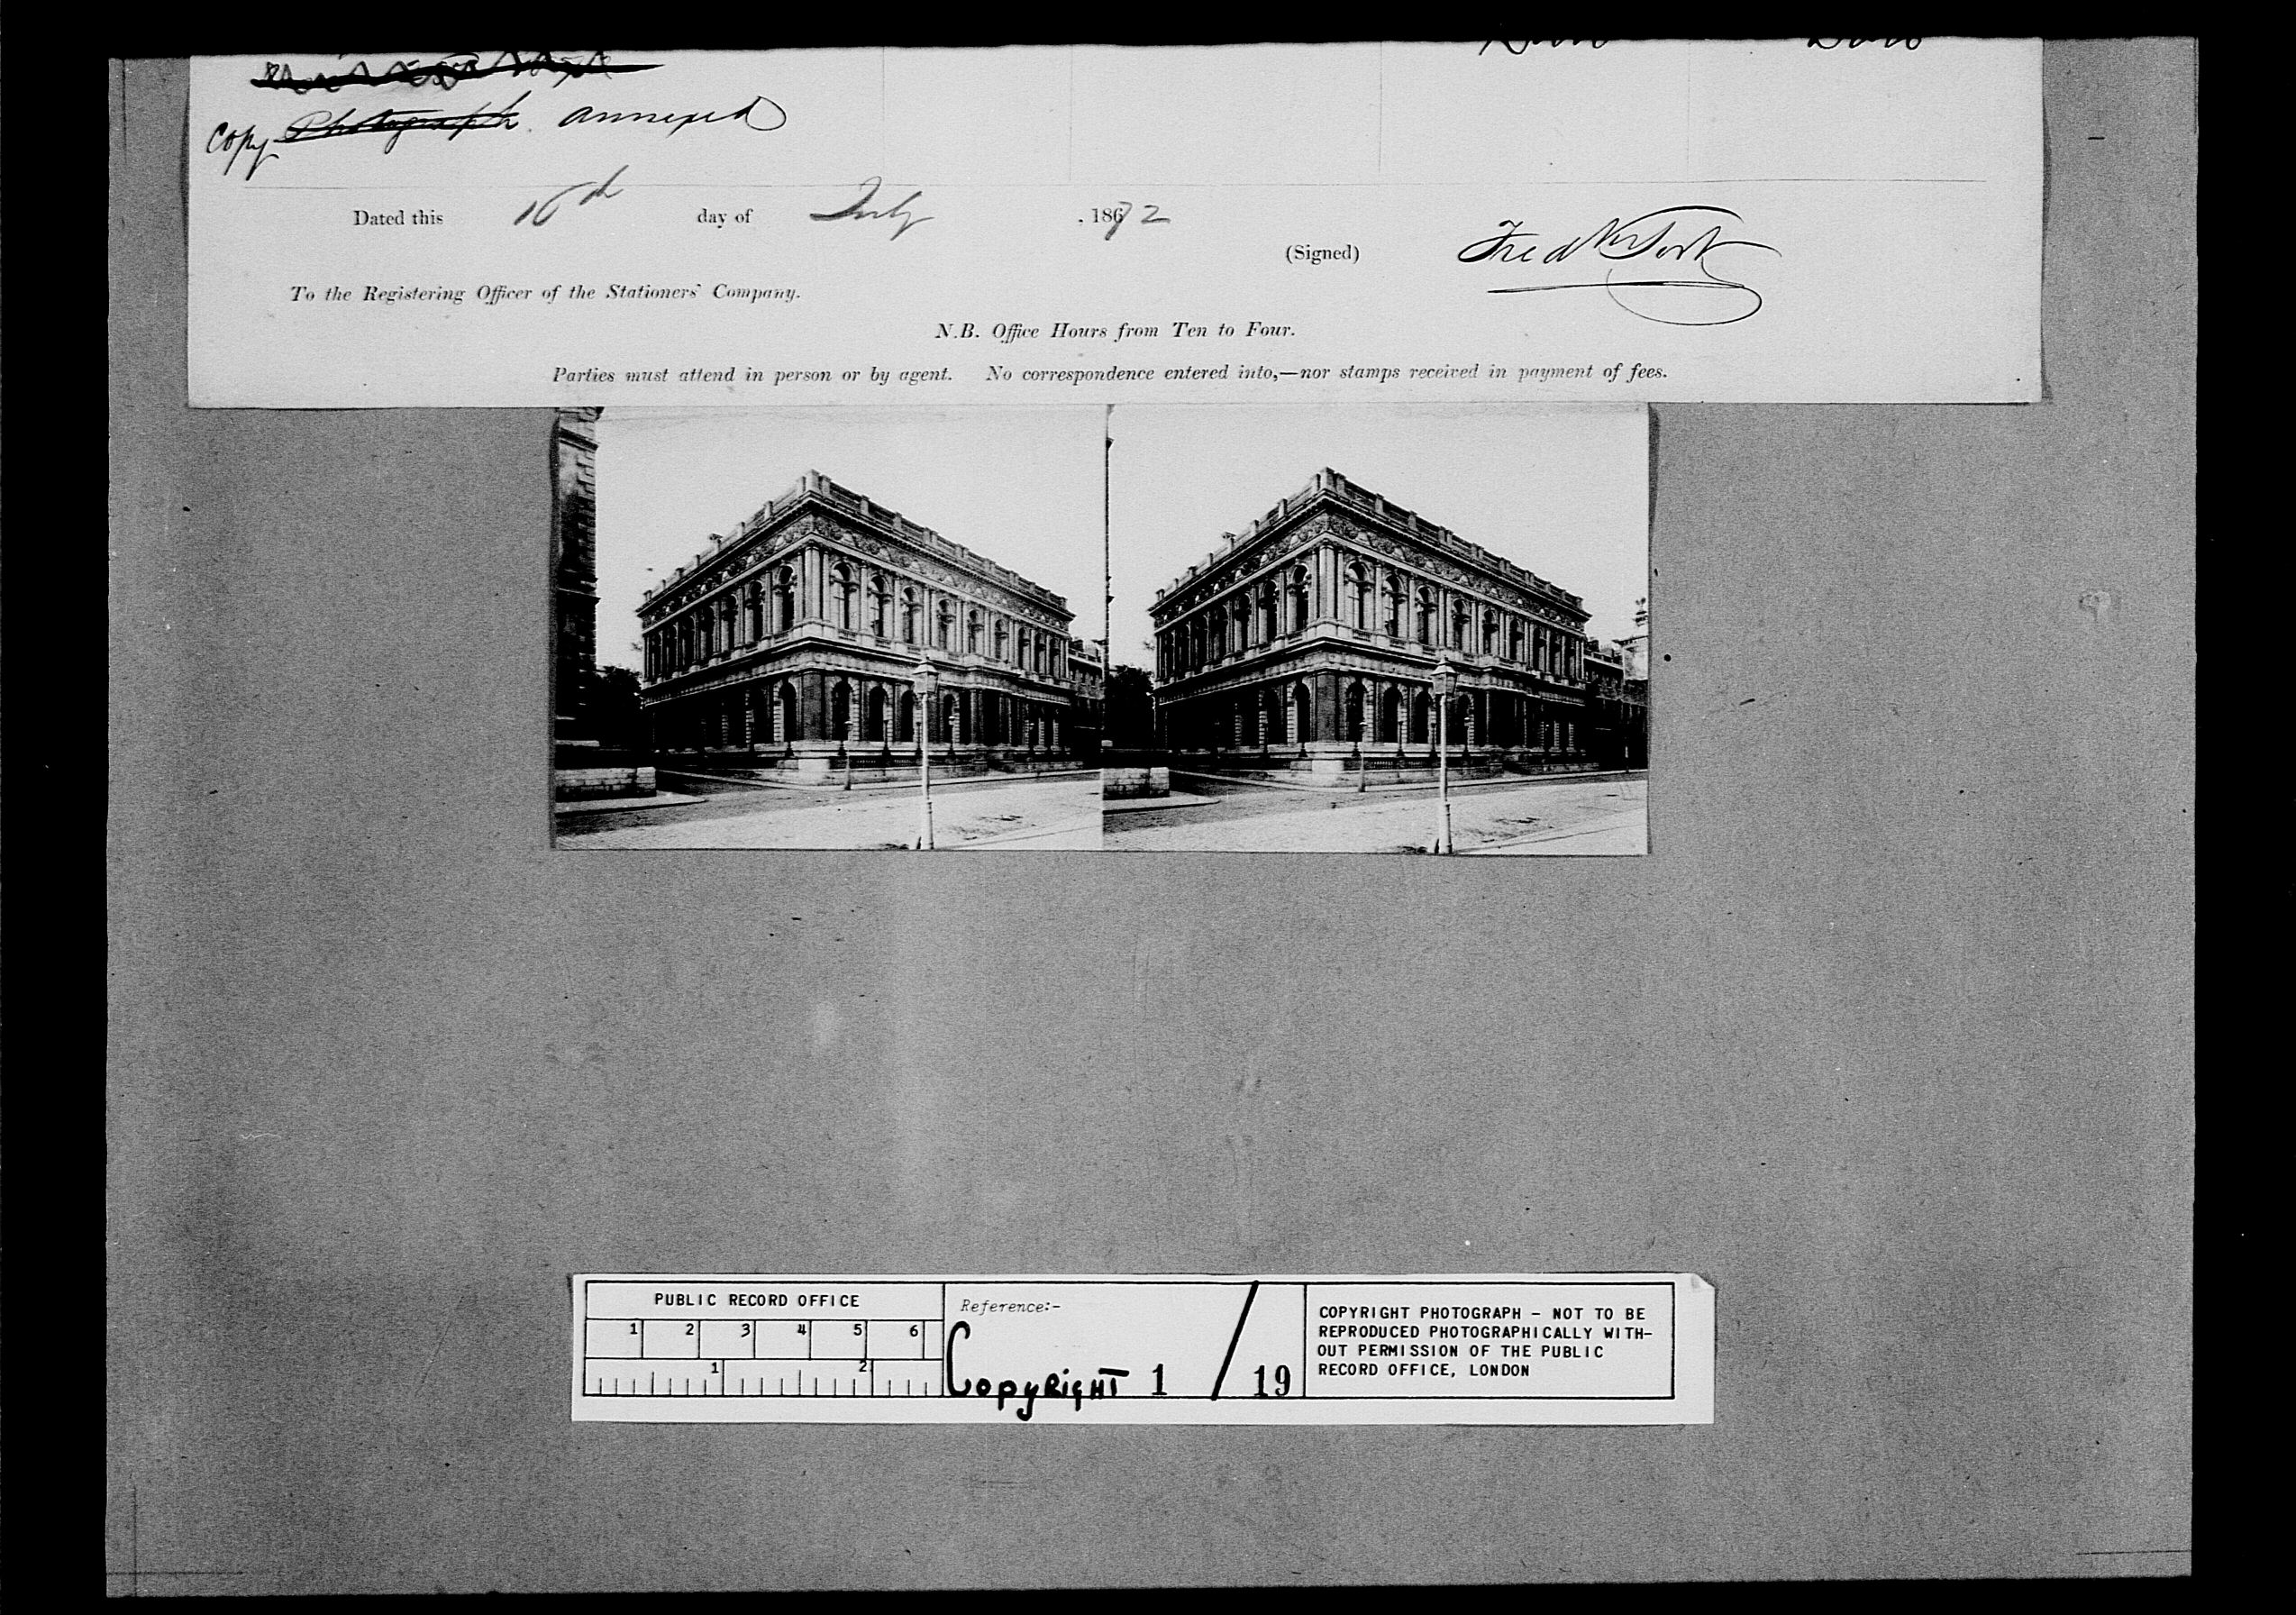 Copy Photograph. annexed
Dated this 16th day of July . 1872
(Signed) Fredk York
To the Registering Officer of the Stationers' Company.
N.B. Office Hours from Ten to Four.
Parties must attend in person or by agent. No correspondence entered into,—nor stamps received in payment of fees.
PUBLIC RECORD OFFICE
1 2 3 4 5 6
1 2
Reference:-
Copyright 1 / 19
COPYRIGHT PHOTOGRAPH - NOT TO BE
REPRODUCED PHOTOGRAPHICALLY WITH-
OUT PERMISSION OF THE PUBLIC
RECORD OFFICE, LONDON